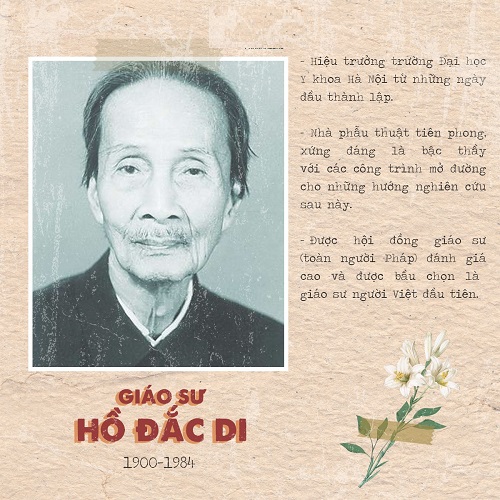 - Hiệu trưởng trường Đại học
Y khoa Hà Nội từ những ngày
đầu thành lập.
- Nhà phẫu thuật tiên phong,
xứng đáng là bậc thầy
với các công trình mở đường
cho những hướng nghiên cứu
sau này.
- Được hội đồng giáo sư
(toàn người Pháp) đánh giá
cao và được bầu chọn là
giáo sư người Việt đầu tiên.
GIÁO SƯ
HỒ ĐẮC DI
1900-1984